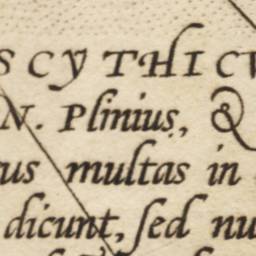 SCYTHICV
N. Plinius, &
us multas in
dicunt, ſed nu